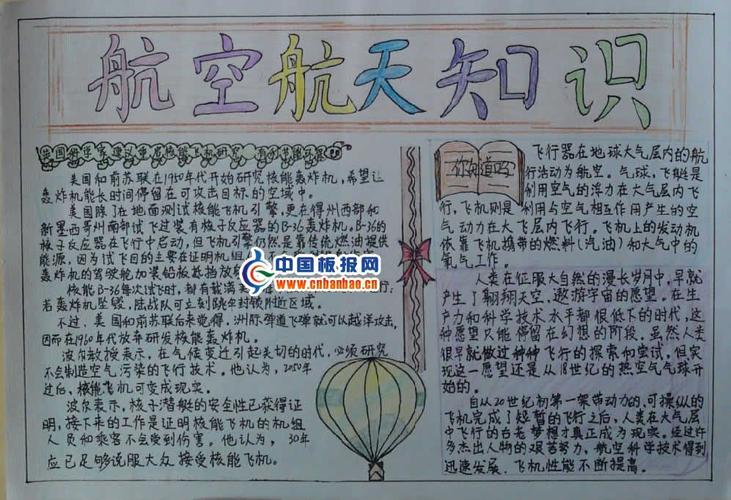 航空航天知识
英国科学家建议重启核能飞机研究
美国和前苏联在1950年代开始研究核能轰炸机,希望让
轰炸机能长时间停留在可攻击目标的空域中。
美国除了在地面测试核能飞机引擎,更在得州西部和
新墨西哥州南部试飞过装有核子反应器的B-36轰炸机。B-36的
核子反应器在飞行中启动,但飞机引擎仍然是靠传统燃油提供
能源,因为试飞目的主要在证明机组
轰炸机的驾驶舱加装铅板挡放射
核能B-36每次试飞时,都有载满
若轰炸机坠毁,陆战队可立刻跳伞封锁附近区域。
不过,美国和前苏联后来觉得,洲际弹道飞弹就可以越洋攻击,
因而在1960年代放弃研发核能轰炸机。
波尔教授表示,在气候变迁引起关切的时代,必须研究
不会制造空气污染的飞行技术。他认为,2050年
过后,核能飞机可变成现实。
波尔表示,核子潜艇的安全性已获得证
明,接下来的工作是证明核能飞机的机组
人员和乘客不会受到伤害。他认为,30年
应已足够说服大众接受核能飞机。
中国板报网
www.cnbanbao.cn
你知道吗
飞行器在地球大气层内的航
行活动为航空。气球,飞艇是
利用空气的浮力在大气层内飞
行,飞机则是利用与空气相互作用产生的空
气动力在大气层内飞行。飞机上的发动机
依靠飞机携带的燃料(汽油)和大气中的
氧气工作。
人类在征服大自然的漫长岁月中,早就
产生了翱翔天空、遨游宇宙的愿望。在生
产力和科学技术水平都很低下的时代,这
种愿望只能停留在幻想的阶段。虽然人类
很早就做过种种飞行的探索和尝试,但实
现这一愿望还是从18世纪的热空气气球开
始的。
自从20世纪初第一架带动力的、可操纵的
飞机完成了短暂的飞行之后,人类在大气层
中飞行的古老梦想才真正成为现实。经过许
多杰出人物的艰苦努力,航空科学技术得到
迅速发展,飞机性能不断提高。